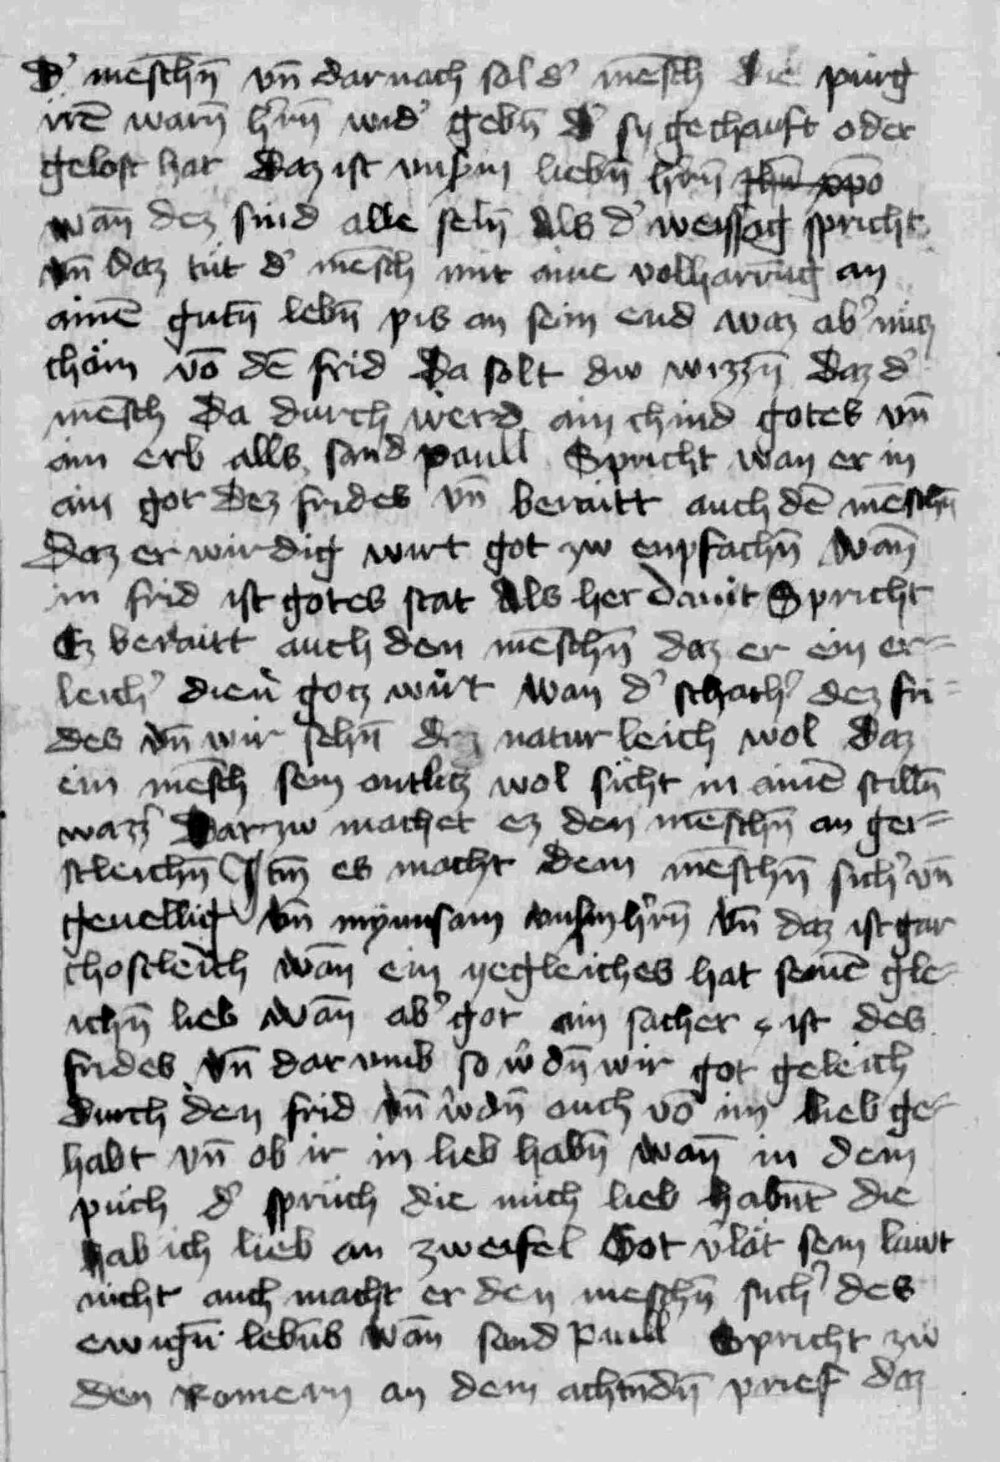 d' mēschn̄ vn̄ darnach sol d' mēsch die purg
irē warn̄ h'rn̄ wid' gebn̄ d' sy gechauft oder
gelost hat daz ist vnsm liebn̄ h'rn̄ jhū xp̄o
wan̄ dez sind alle seln̄ als d' weyssag spricht
vn̄ daz tut d' mēsch mit aine volharrūg an
ainē gutn̄ lebn̄ pis an sein end waz ab' nucz
chöm vō dē frid Da solt dw wizzn̄ daz d'
mēsch da durch werd ain chind gotes vn̄
ain erb alls sand paull Spricht wan er in
ain got dez frides vn̄ beraitt auch dē mēschn̄
daz er wirdig wirt got zw enpfachn̄ wan̄
in frid ist gotes stat als her dauit Spricht
Ez beraitt auch den mēschn̄ daz er ein er=
leich' dien' gotz wurt wan d' schach' dez fri=
des vn̄ wir sehn̄ naturleich wol daz
ein mēsch sein antlitz wol sicht in ainē stilln̄
wazz' Darzw machet ez den mēschn̄ an gey=
stleichn̄ Itm̄ es macht dem mēschn̄ sich' vn̄
geuellig vn̄ mynnsam vnsm h'rn̄ vn̄ daz ist gar
chostleich wan̄ ein yegleiches hat seinē gle=
ichn̄ lieb wan̄ ab' got ain sacher ist des
frides vn̄ darumb so w'dn̄ wir got geleich
durch den frid vn̄ w'dn̄ auch vō im lieb ge=
habt vn̄ ob ir in lieb habn̄ wan̄ in dem
puch d' spruch die mich lieb habnt die
hab ich lieb an zweifel Got v'lat sein lawt
nicht auch macht er den meschn̄ sich' des
ewign̄ lebn̄s wan̄ sand Paull Spricht zw
den Romern an dem achtndn̄ prief daz